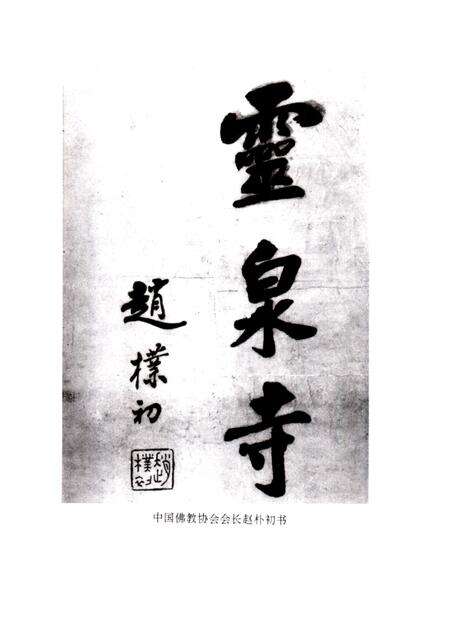 靈泉寺
趙樸初
趙樸初
中国佛教协会会长赵朴初书